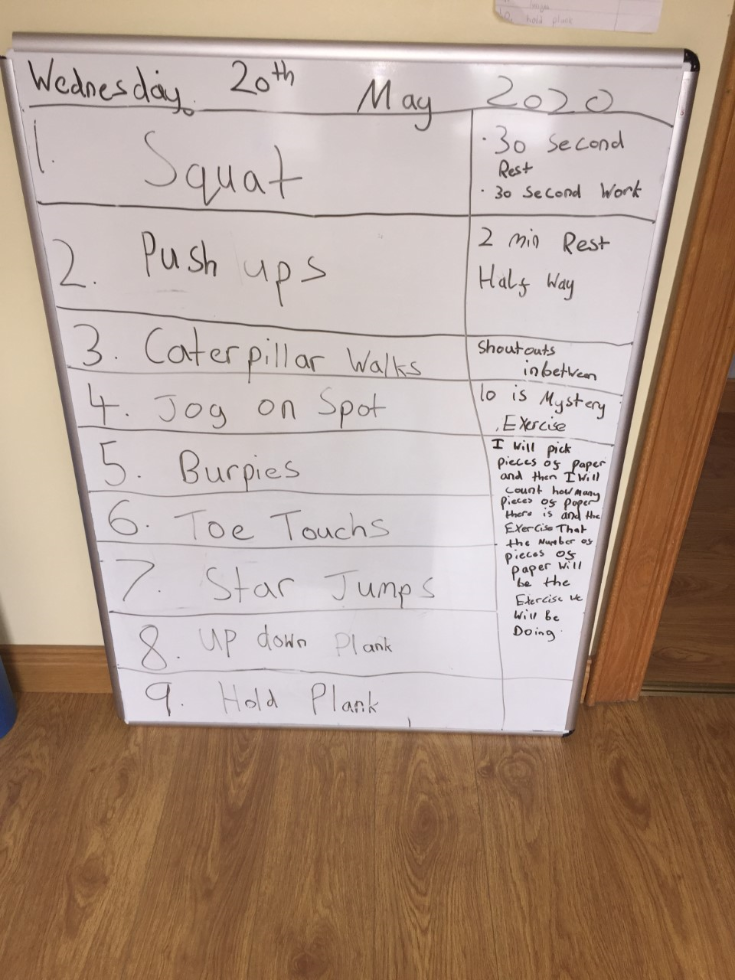 hold plank
Wednesday, 20th May 2020
1. Squat
· 30 Second
Rest
· 30 Second Work
2. Push ups
2 min Rest
Half Way
3. Caterpillar Walks
Shoutouts
inbetween
4. Jog on Spot
10 is Mystery
Exercise
5. Burpies
6. Toe Touchs
7. Star Jumps
8. Up down Plank
9. Hold Plank
I will pick
pieces of paper
and then I will
count how many
pieces of paper
there is and the
Exercise That
the Number of
pieces of
paper will
be the
Exercise we
will be
Doing.